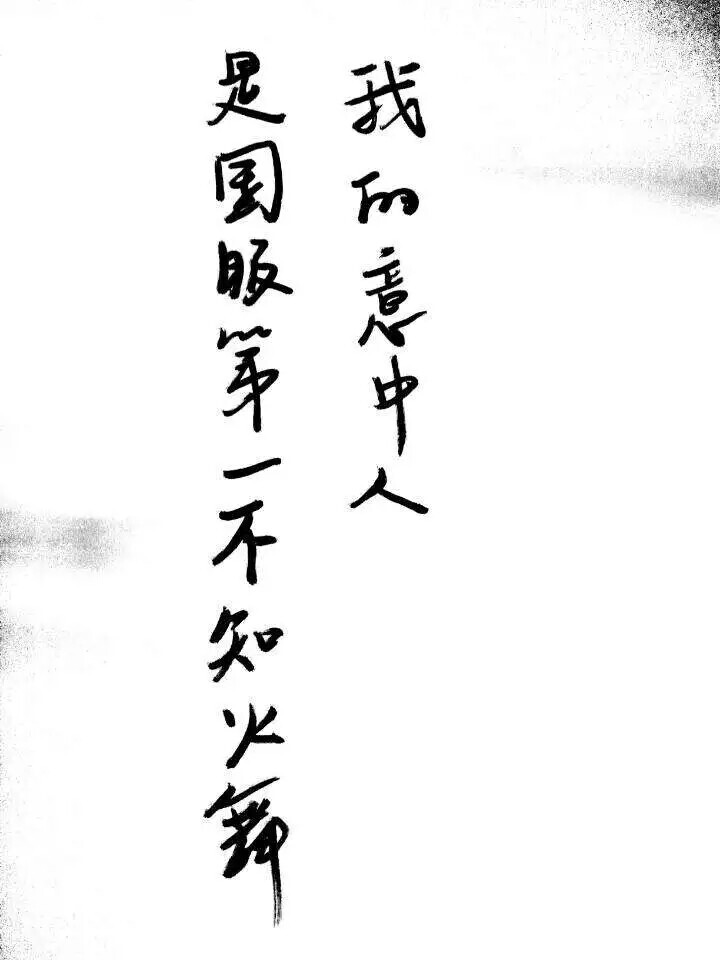 我的意中人
是国服第一不知火舞